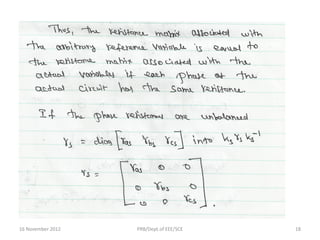 Thus, the resistance matrix associated with
the arbitrary reference variable is equal to
the resistance matrix associated with the
actual variables if each phase of the
actual circuit has the same resistance.
If the phase resistances are unbalanced
rs = diag [ras rbs rcs] into ks rs ks⁻¹
rs = [ras 0 0
0 rbs 0
0 0 rcs].
16 November 2012 PRB/Dept.of EEE/SCE 18